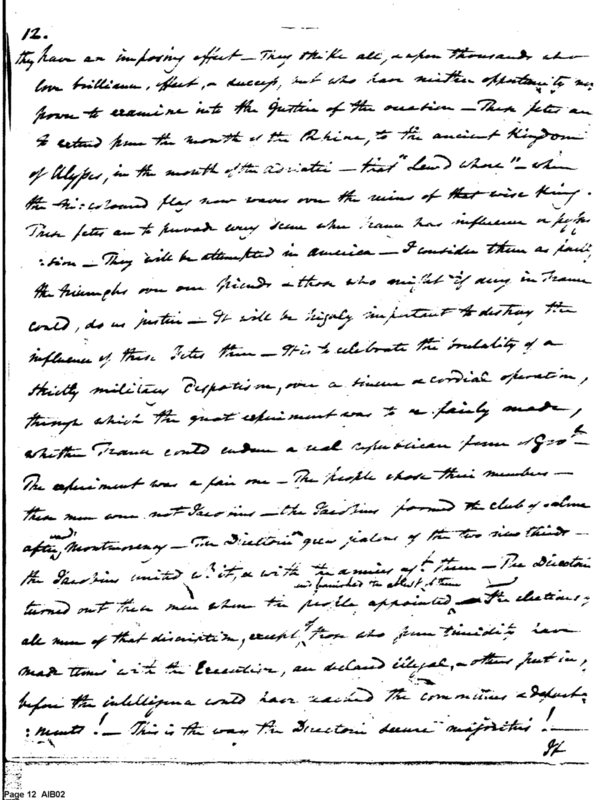 12.
they have an imposing effect — They strike all, & upon thousands who
love brilliance, effect, & success, but who have neither opportunity nor
power to examine into the Justice of the occasion — These fetes are
to extend from the mouth of the Rhine, to the ancient Kingdom
of Ulysses, in the mouth of the Adriatic — that "Land where" — where
the tri:coloured flag now waves over the ruins of that wise King.
These fetes are to pervade every scene where France has influence or posses
:sion — They will be attempted in America — I consider them as
the triumphs over our friends & those who might if any in France
could, do us justice — It will be highly important to destroy the
influence of these Fetes there — It is to celebrate the brutality of a
strictly military Despotism, over a sincere & cordial operation,
through which the great experiment was to be fairly made,
whether France could endure a real republican form of Govt —
The experiment was a fair one — The people chose their members —
these men were not Jacobins — the Jacobins formed the club of
after Montmorency — The Directoire grew jealous of the two new thirds —
the Jacobins united wh. it, & with the armies agt. them — The Directoire
and banished the ablest of them
turned out these men whom the people appointed — The elections of
all men of that discription, except of those who from timidity have
made terms with the Executive, are declared illegal, & others put in,
before the intelligence could have reached the communes & depart
:ments! — This is the way the Directoire secure majorities! —
If
Page 12 AIB02